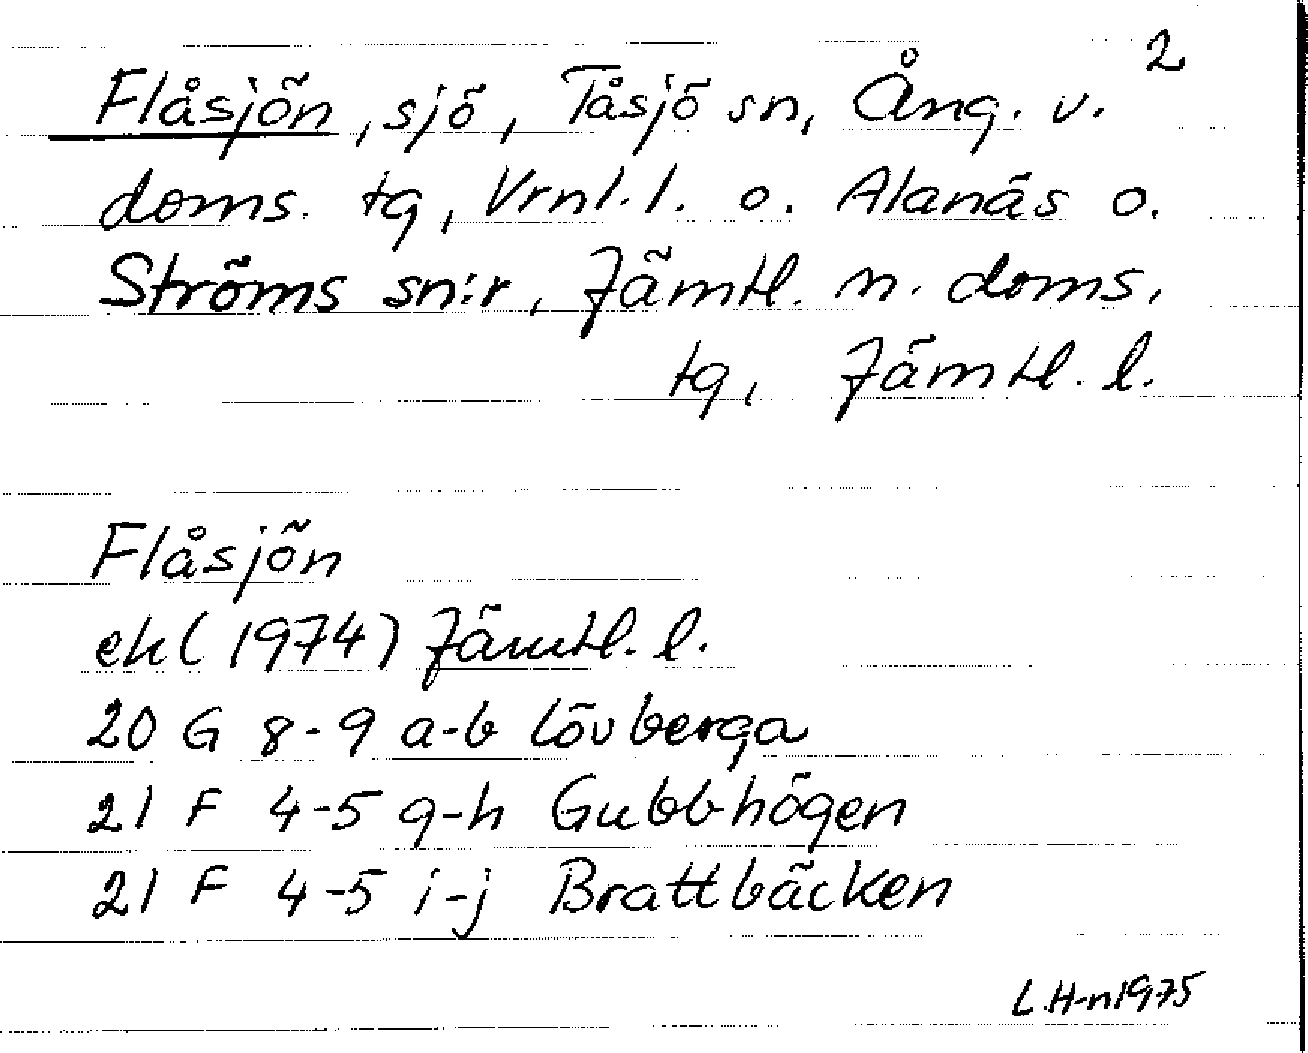 2
Flåsjön, sjö, Tåsjö sn, Ång. v.
doms. tg, Vrnl. l. o. Alanäs o.
Ströms sn:r, Jämtl. n. doms.
tg, Jämtl. l.
Flåsjön
ek (1974) Jämtl. l.
20 G 8-9 a-b Lövberga
21 F 4-5 g-h Gubbhögen
21 F 4-5 i-j Brattbäcken
L.H-n 1975